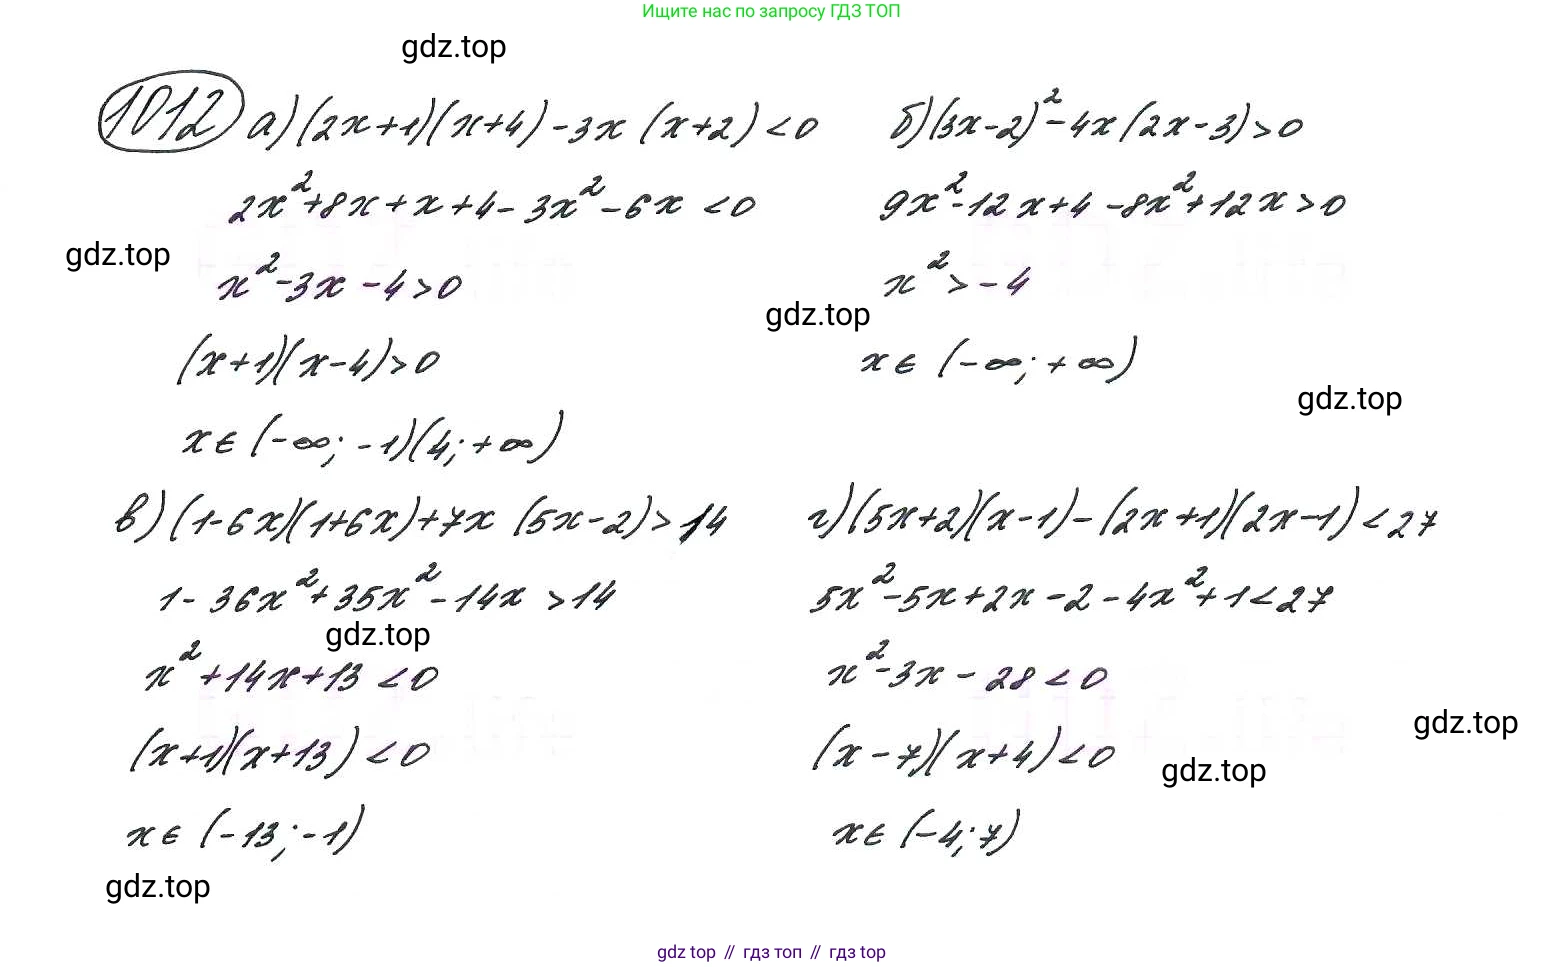 Ищите нас по запросу ГДЗ ТОП
gdz.top
1012 а) (2x+1)(x+4)-3x(x+2)<0
2x²+8x+x+4-3x²-6x<0
gdz.top
x²-3x-4>0
(x+1)(x-4)>0
x∈(-∞;-1)(4;+∞)
б) (3x-2)²-4x(2x-3)>0
9x²-12x+4-8x²+12x>0
x²>-4
gdz.top
x∈(-∞;+∞)
gdz.top
в) (1-6x)(1+6x)+7x(5x-2)>14
1-36x²+35x²-14x>14
gdz.top
x²+14x+13<0
(x+1)(x+13)<0
x∈(-13;-1)
gdz.top
г) (5x+2)(x-1)-(2x+1)(2x-1)<27
5x²-5x+2x-2-4x²+1<27
x²-3x-28<0
gdz.top
(x-7)(x+4)<0
gdz.top
x∈(-4;7)
gdz top // гдз топ // гдз top